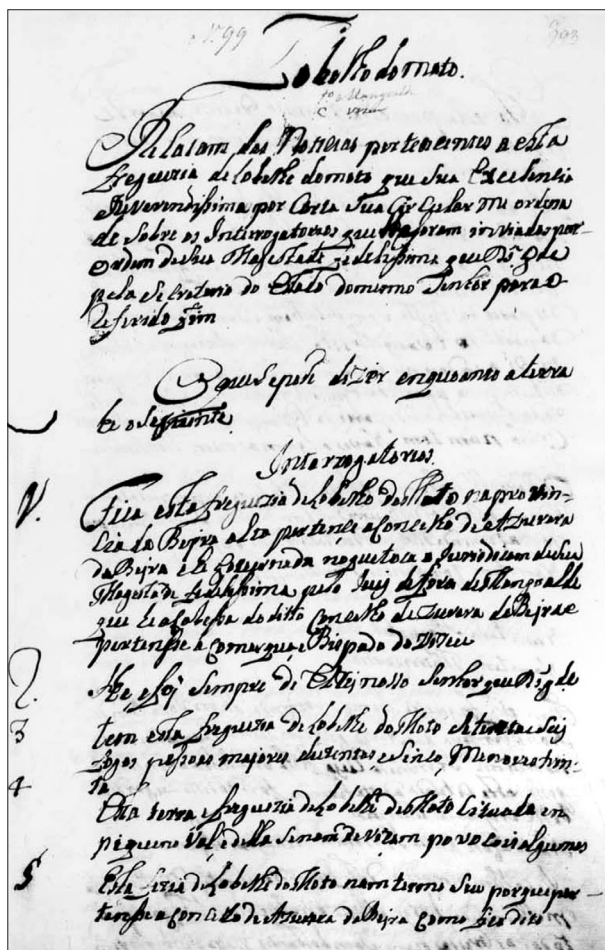 nº 99 793
Lobelhe do mato.
Relasam das Noticias pertencentes a esta
freguezia de Lobelhe do mato que Sua Excelencia
Reverendissima por Carta Sua Circular me ordena
de Sobre os Interrogatorios que foram inviados por
ordem de Sua Magestade fidelissima que Ds gde
pela Secretario do Estado
Referido fim
O que Se pode dizer enquoanto a terra
he o Seguinte
Interrogatorios.
1. Fica esta freguezia de Lobelhe do Mato na provin-
cia da Beyra alta pertence a Concelho de Azurara
da Beyra e he governada no que toca a Juridicam de Sua
Magestade fidelissima pelo Juis de fora de Mangoalde
que he a Cabessa do ditto Concelho de Zurara da Beyra e
pertense a Comarqua e Bispado de Vizeu
2. He e foj Sempre de ElRej nosso Senhor que Ds gde
3 tem esta freguezia de Lobelhe do Moto Setenta e Seis
fogos pessoas majores duzentas e Sinco, Menores trin-
4 ta
Esta terra e freguezia de Lobelhe do Moto Situada en
piqueno Vale e della Senam devizam povoacois algumas
5 Esta de Lobelhe do Moto nam termo Seu porque per-
tense a Concelho de Azurara da Beyra Como fica ditto